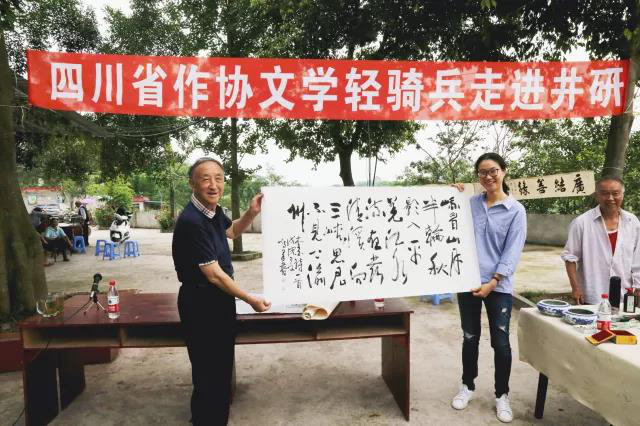 四川省作协文学轻骑兵走进井研
峨眉山月
半輪秋
影入平
羌江水
流夜發
清溪向
三峡思君
不見下渝
州
廣結善緣